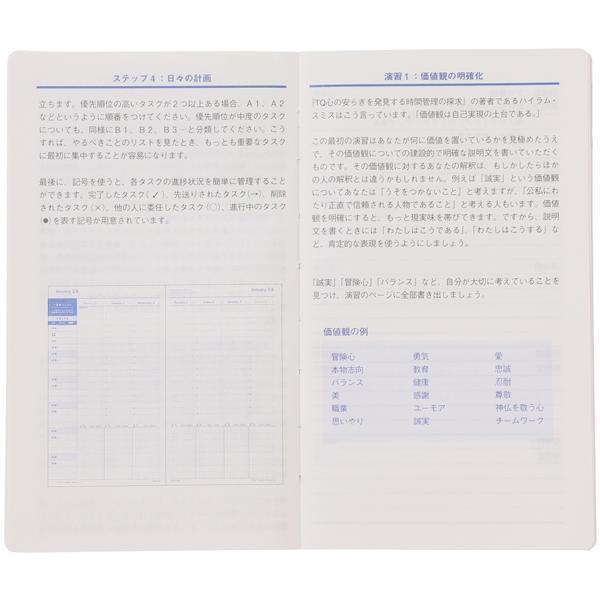 ステップ４：日々の計画
立ちます。優先順位の高いタスクが２つ以上ある場合、Ａ１、Ａ２
などというように順番をつけてください。優先順位が中度のタスク
についても、同様にＢ１、Ｂ２、Ｂ３…と分類してください。こう
すれば、やるべきことのリストを見たとき、もっとも重要なタスク
に最初に集中することが容易になります。
最後に、記号を使うと、各タスクの進捗状況を簡単に管理すること
ができます。完了したタスク（✓）、先送りされたタスク（→）、削除
されたタスク（×）、他の人に委任したタスク（○）、進行中のタスク
（●）を表す記号が用意されています。
演習１：価値観の明確化
『TQ心の安らぎを発見する時間管理の探求』の著者であるハイラム・
スミスはこう言っています。「価値観は自己実現の土台である。」
この最初の演習はあなたが何に価値を置いているかを見極めたうえ
で、その価値観についての建設的で明確な説明文を書いていただく
ものです。その価値観に対するあなたの解釈は、もしかしたらほか
の人の解釈とは違うかもしれません。例えば「誠実」という価値観
についてあなたは「うそをつかないこと」と考えますが、「公私にわ
たり正直で信頼される人物であること」と考える人もいます。価値
観を明確にすると、もっと現実味を帯びてきます。ですから、説明
文を書くときには「わたしはこうである」、「わたしはこうする」な
ど、肯定的な表現を使うようにしましょう。
「誠実」「冒険心」「バランス」など、自分が大切に考えていることを
見つけ、演習のページに全部書き出しましょう。
価値観の例
冒険心 勇気 愛
本物志向 教育 忠誠
バランス 健康 忍耐
美 感謝 尊敬
職業 ユーモア 神仏を敬う心
思いやり 誠実 チームワーク